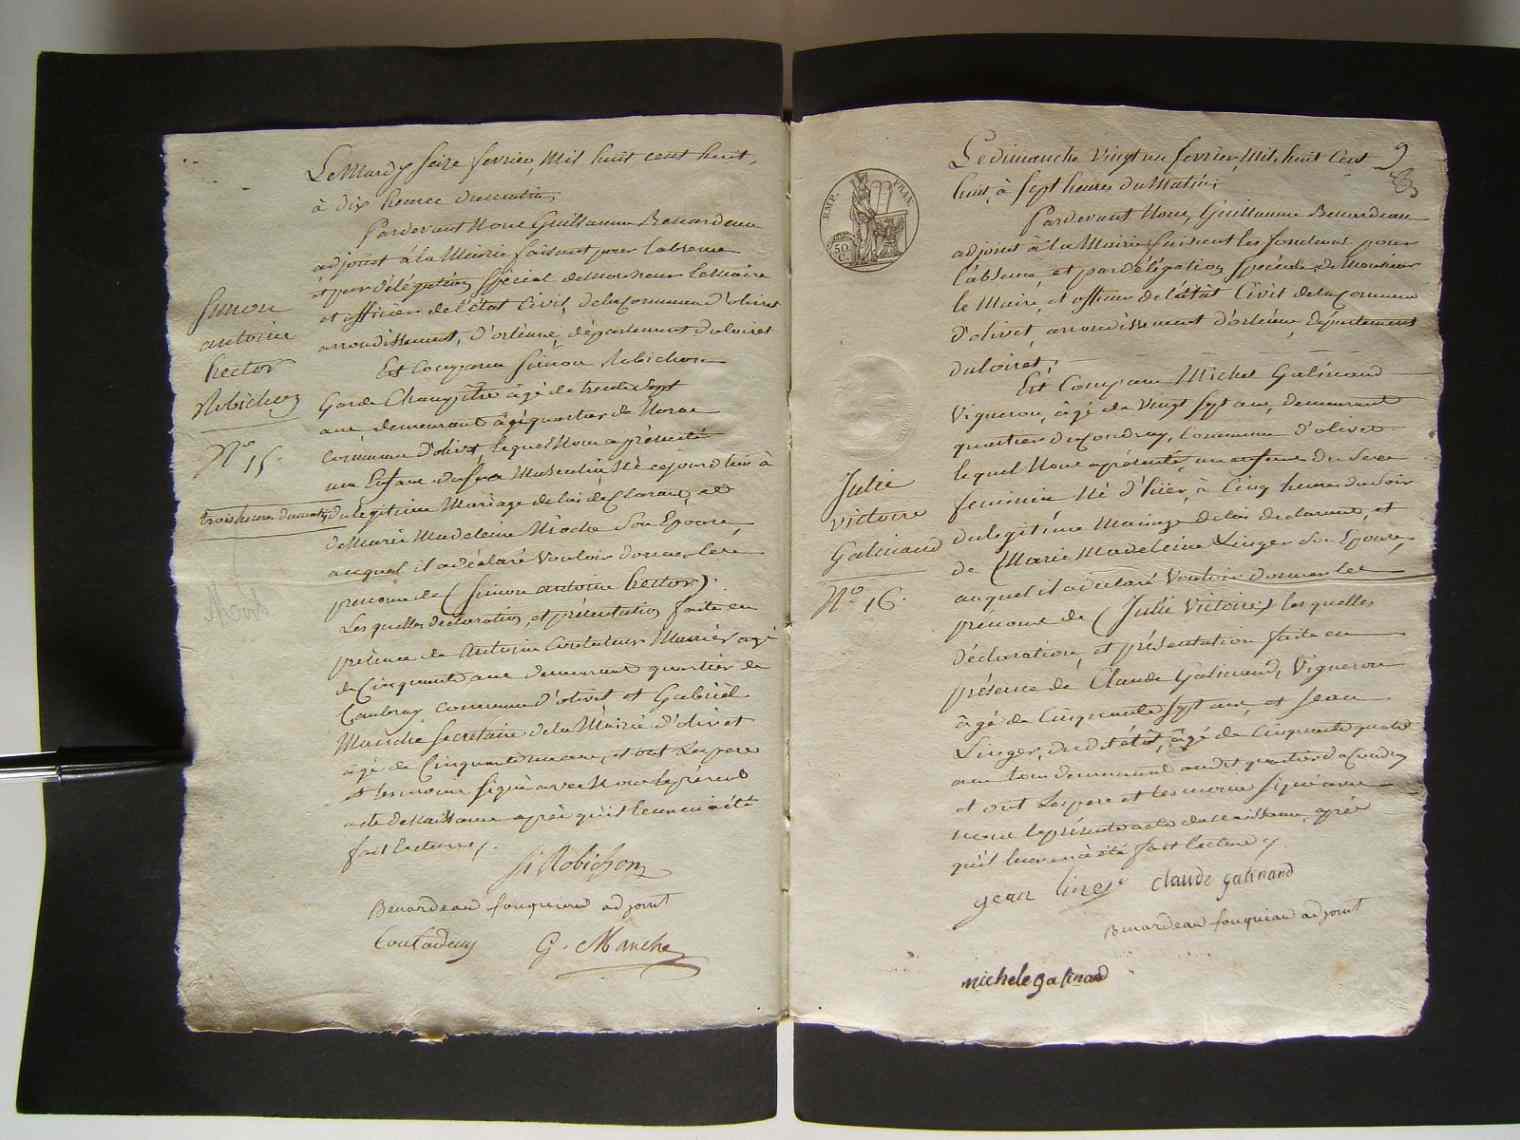 Le Mardy seize fevrier, Mil huit cent huit,
à dix heures du matin;
Pardevant Nous Guillaume Benardeau
adjoint à la Mairie faisant pour l'absence
et par délégation spécial de Monsieur Le Maire
et officier de l'état Civil, de la Commune d'olivet
arrondissement, d'orléans, département du loiret
Est Comparu Simon Robichon
Garde Champêtre âgé de trente sept
ans demeurant quartier de
commune d'olivet, lequel Nous a présenté
un Enfant du sexe Masculin Né cejourd'huis à
trois heures du matin, du légitime Mariage de lui déclarant, et
de Marie Madeleine Mioche Son Epouse,
auquel il a déclaré Vouloir donner les
prenoms de (Simon antoine hector).
Les quelles declaration, et présentation faite en
présence de Antoine Coutadeur âgé
de Cinquante ans demeurant quartier de
Caubray commune d'olivet et Gabriël
Manche secretaire de la Mairie d'olivet
âgé de Cinquante ans, et ont Les pere
et temoins signé avec Nous le présent
acte de Naissance après qu'il leur en a été
fait lecture.
Si Robichon
Benardeau fouqueau adjoint
Coutadeur G. Manche
Simon
antoine
hector
Robichon
N.º 15.
9
EMP. FRAN.
50 C.
Le dimanche Vingt un fevrier, Mil, huit Cent
huit, à sept heures du Matin;
Pardevant Nous, Guillaume Benardeau
adjoint à la Mairie faisant les fonctions pour
l'absence, et par délégation spéciale, de Monsieur
le Maire, et officier de l'état Civil de la Commune
d'olivet, arrondissement d'orléans, Département
du loiret;
Est Comparu Michel Galinand
Vigneron, âgé de Vingt sept ans, demeurant
quartier du Coudray, Commune d'olivet
lequel Nous a présenté, un enfant du Sexe
feminin Né d'hier, à Cinq heures du soir
du légitime Mariage de lui declarant, et
de (Marie Madeleine Linger son Epouse,
auquel il a déclaré Vouloir donner les
prénoms de (Julie Victoire) les quelles
déclaration, et présentation faite en
présence de Claude Galinand, Vigneron
âgé de Cinquante sept ans, et Jean
Linger, du dit état, âgé de Cinquante quatre
ans tous demeurant audit quartier du Coudray
et ont Les pere et temoins signé avec
nous le présent acte de naissance, après
qu'il leur en a été fait lecture
jean linger claude galinand
Benardeau fouqueau adjoint
michele galinand
Julie
victoire
Galinand
N.º 16.